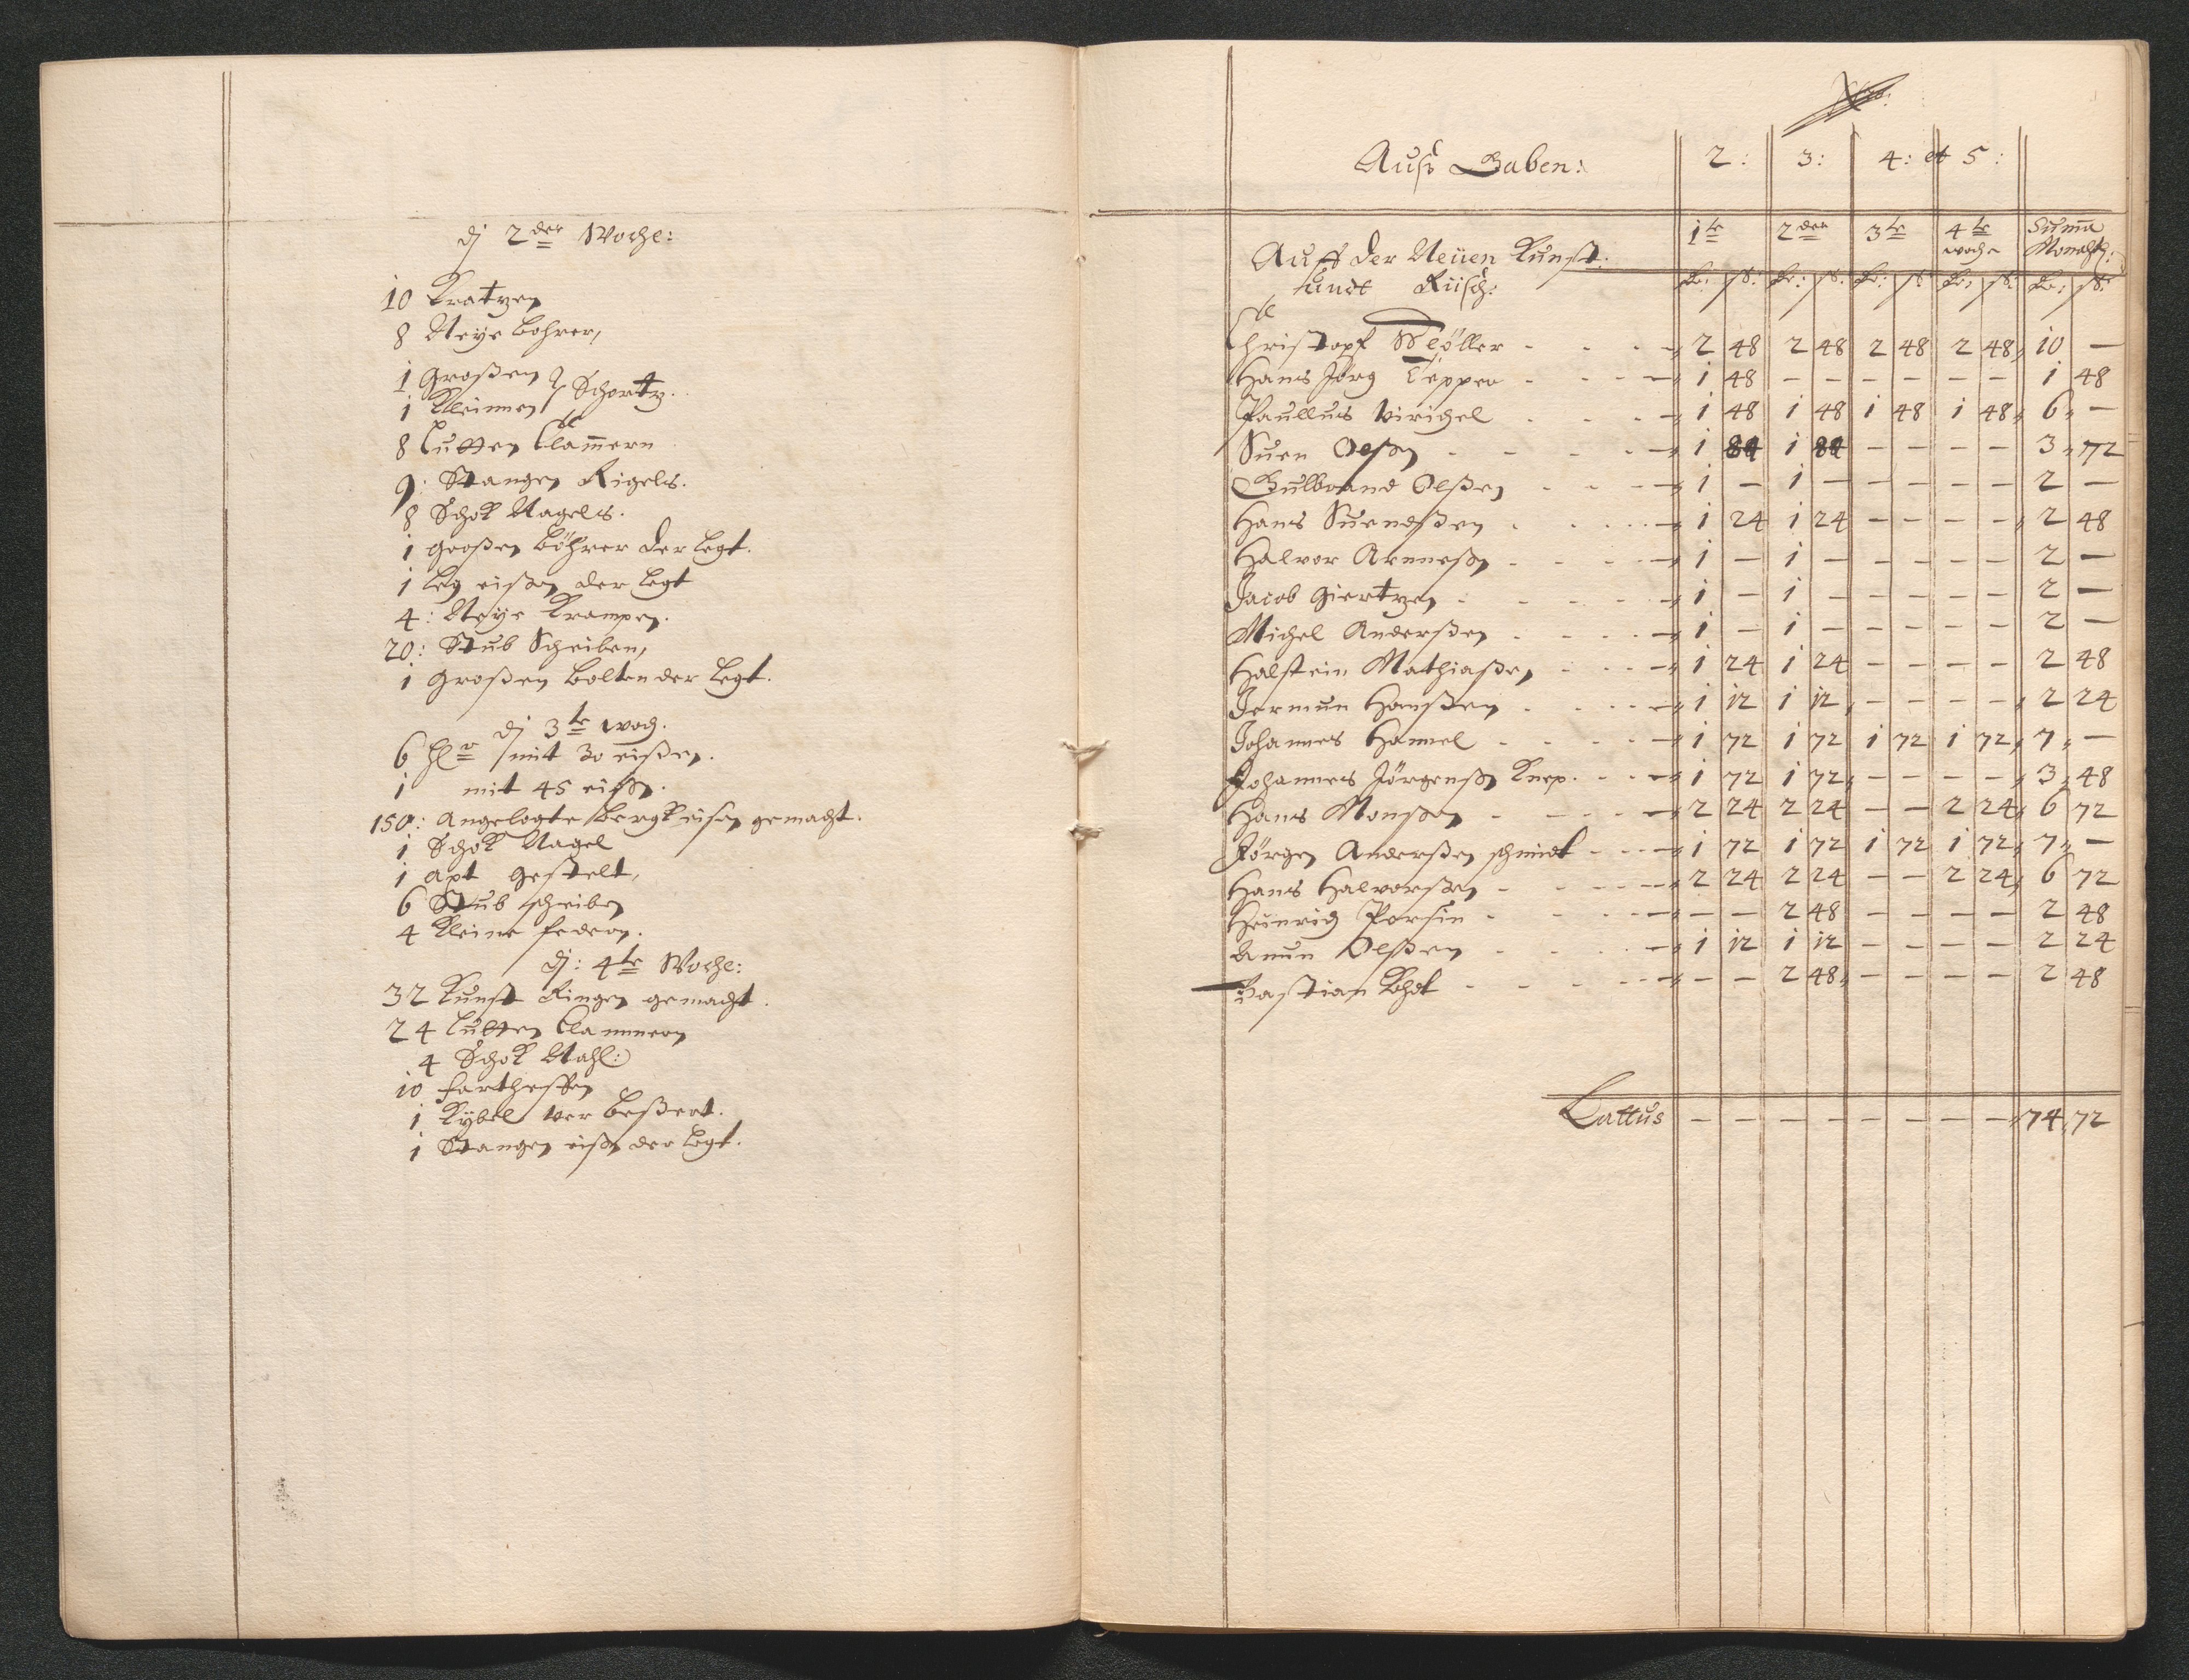 dj 2der Woche:
10 Kratzen
8 Neye bohrer,
1 Großen
1 Kleinnen Schortz.
8 Lutten Clam̄ern
9: Stangen Rigels.
8 Schok Nagels.
1 großen böhrer der legt.
1 leg eißen der legt
4: Neye Krampen.
20: Stub Scheiben,
1 Großen bolten der legt.
dj 3te woch.
6 mit 30 eißen.
1 mit 45 eißen.
150: angelegte bergk eisen gemacht.
1 Schok Nagel
1 axt gestelt,
6 Stub scheiben
4 Kleine federn.
dj: 4te Woche:
32 Kunst Ringen gemacht.
24 Lutten Clammern
4 Schok Nahl:
10
1 Kybel ver beßert.
1 Stangen eißen der legt.
Auß Gaben: 2: 3: 4: et 5:
Auff der Neüen Kunst. 1te 2der 3te 4te woche Sum̄a Monahtz:
undt Rüsch:
Christopf Möller 2 48 2 48 2 48 2 48 10 —
Hans Jörg Tepper 1 48 — — — — — — 1 48
Paullus virichel 1 48 1 48 1 48 1 48 6 —
Suen Olßen 1 84 1 84 — — — — 3 72
Gulbrand Olßen 1 — 1 — — — — — 2 —
Hans Suendßen 1 24 1 24 — — — — 2 48
Halvor Arneßen 1 — 1 — — — — — 2 —
Jacob Giertzen 1 — 1 — — — — — 2 —
Michel Anderßen 1 — 1 — — — — — 2 —
Halstein Mathiaßen 1 24 1 24 — — — — 2 48
Jermun Hanßen 1 12 1 12 — — — — 2 24
Johannes Hamel 1 72 1 72 1 72 1 72 7 —
Johannes Jörgenßen Knep. 1 72 1 72 — — — — 3 48
Hans Monßen 2 24 2 24 — — 2 24 6 72
Jörgen Anderßen schmidt 1 72 1 72 1 72 1 72 7 —
Hans Halvorßen 2 24 2 24 — — 2 24 6 72
Heinrich Porsin — — 2 48 — — — — 2 48
Amun Olßen 1 12 1 12 — — — — 2 24
Bastian Koht — — 2 48 — — — — 2 48
Lattus — — — — — — — — 74 72